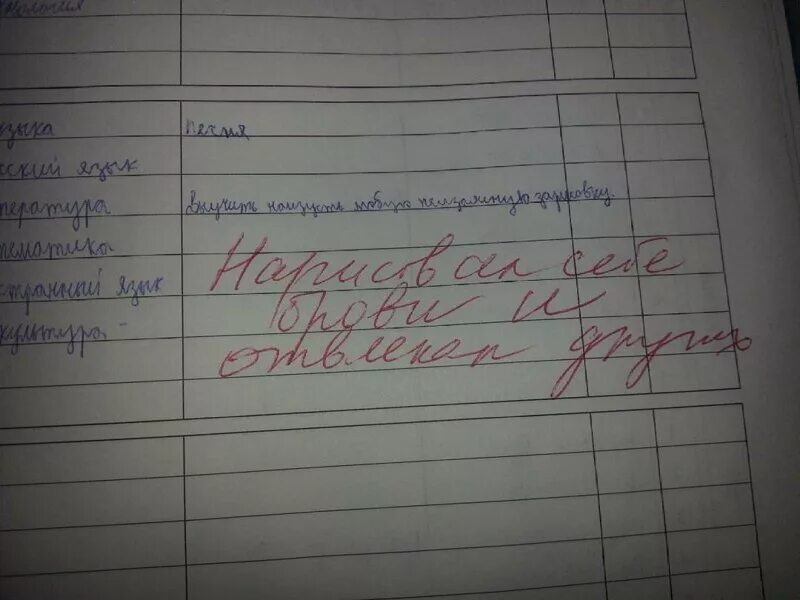 узыка песня
сский язык
тература Выучить наизусть любую
тематика
странный язык
культура -
Нарисовал себе
брови и
отвлекал других